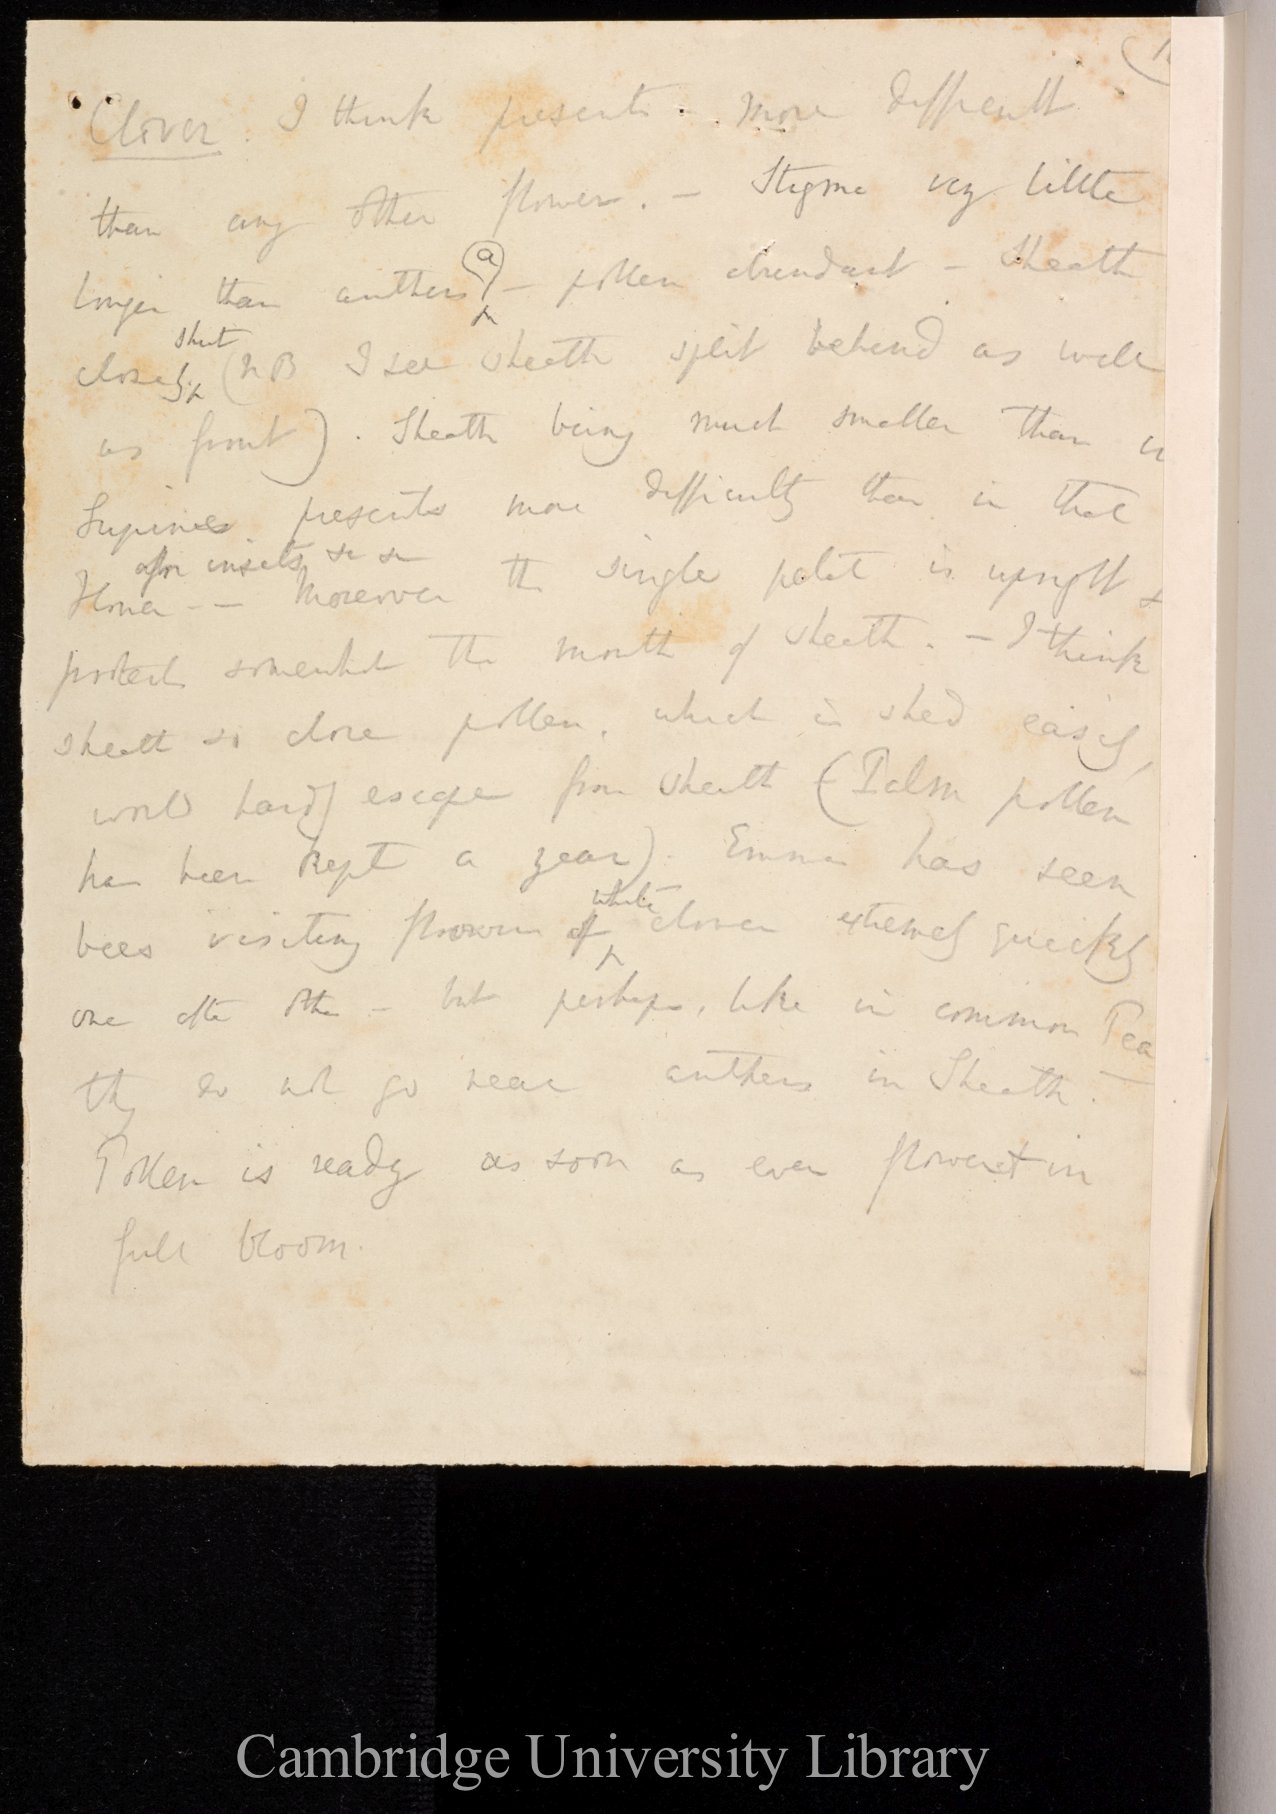 Clover. I think presents - more difficult
than any other flower. - Stigma very little
longer than anthers (a) - pollen abundant - Sheath
shut
closely (NB I see sheath split behind as well
as front). Sheath being much smaller than in
Lupines presents more difficulty than in that
after insects
flower -- Moreover the single petal is upright &
protects somewhat the mouth of sheath. - I think
sheath so close pollen, which is shed easily,
would hardly escape from sheath (Palm pollen
has been kept a year). Emma has seen
white
bees visiting flowers of clover extremely quickly
one after other - but perhaps, like in common Pea
they do not go near anthers in Sheath. -
Pollen is ready as soon as ever floweret in
full bloom.
Cambridge University Library